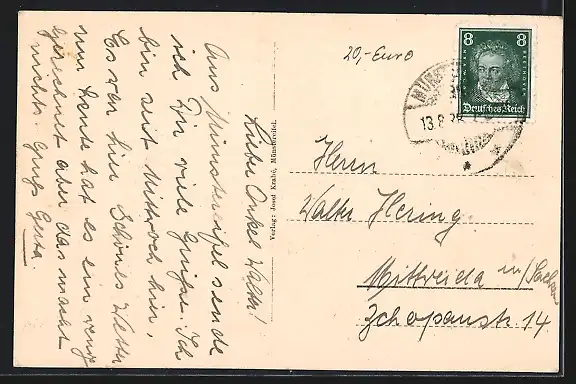 Lieber Onkel Walter!
Aus Münstereifel sende
ich Dir viele Grüße. Ich
bin seit Mittwoch hier.
Es war hier schönes Wetter
nur heute hat es ein wenig
geregnet aber das macht
nichts. Gruß Gerta.
Verlag: Josef Krahé, Münstereifel.
20,- Euro
8 8
BEETHOVEN
Deutsches Reich
13.8.
Herrn
Walter Hering
Mittweida in/Sachsen
Zschopaustr. 14.